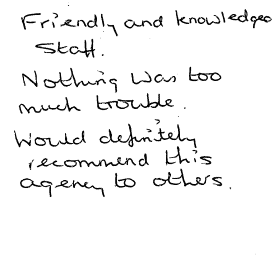 Friendly and knowledgea
Staff.
Nothing was too
much trouble.
Would definitely
recommend this
agency to others.